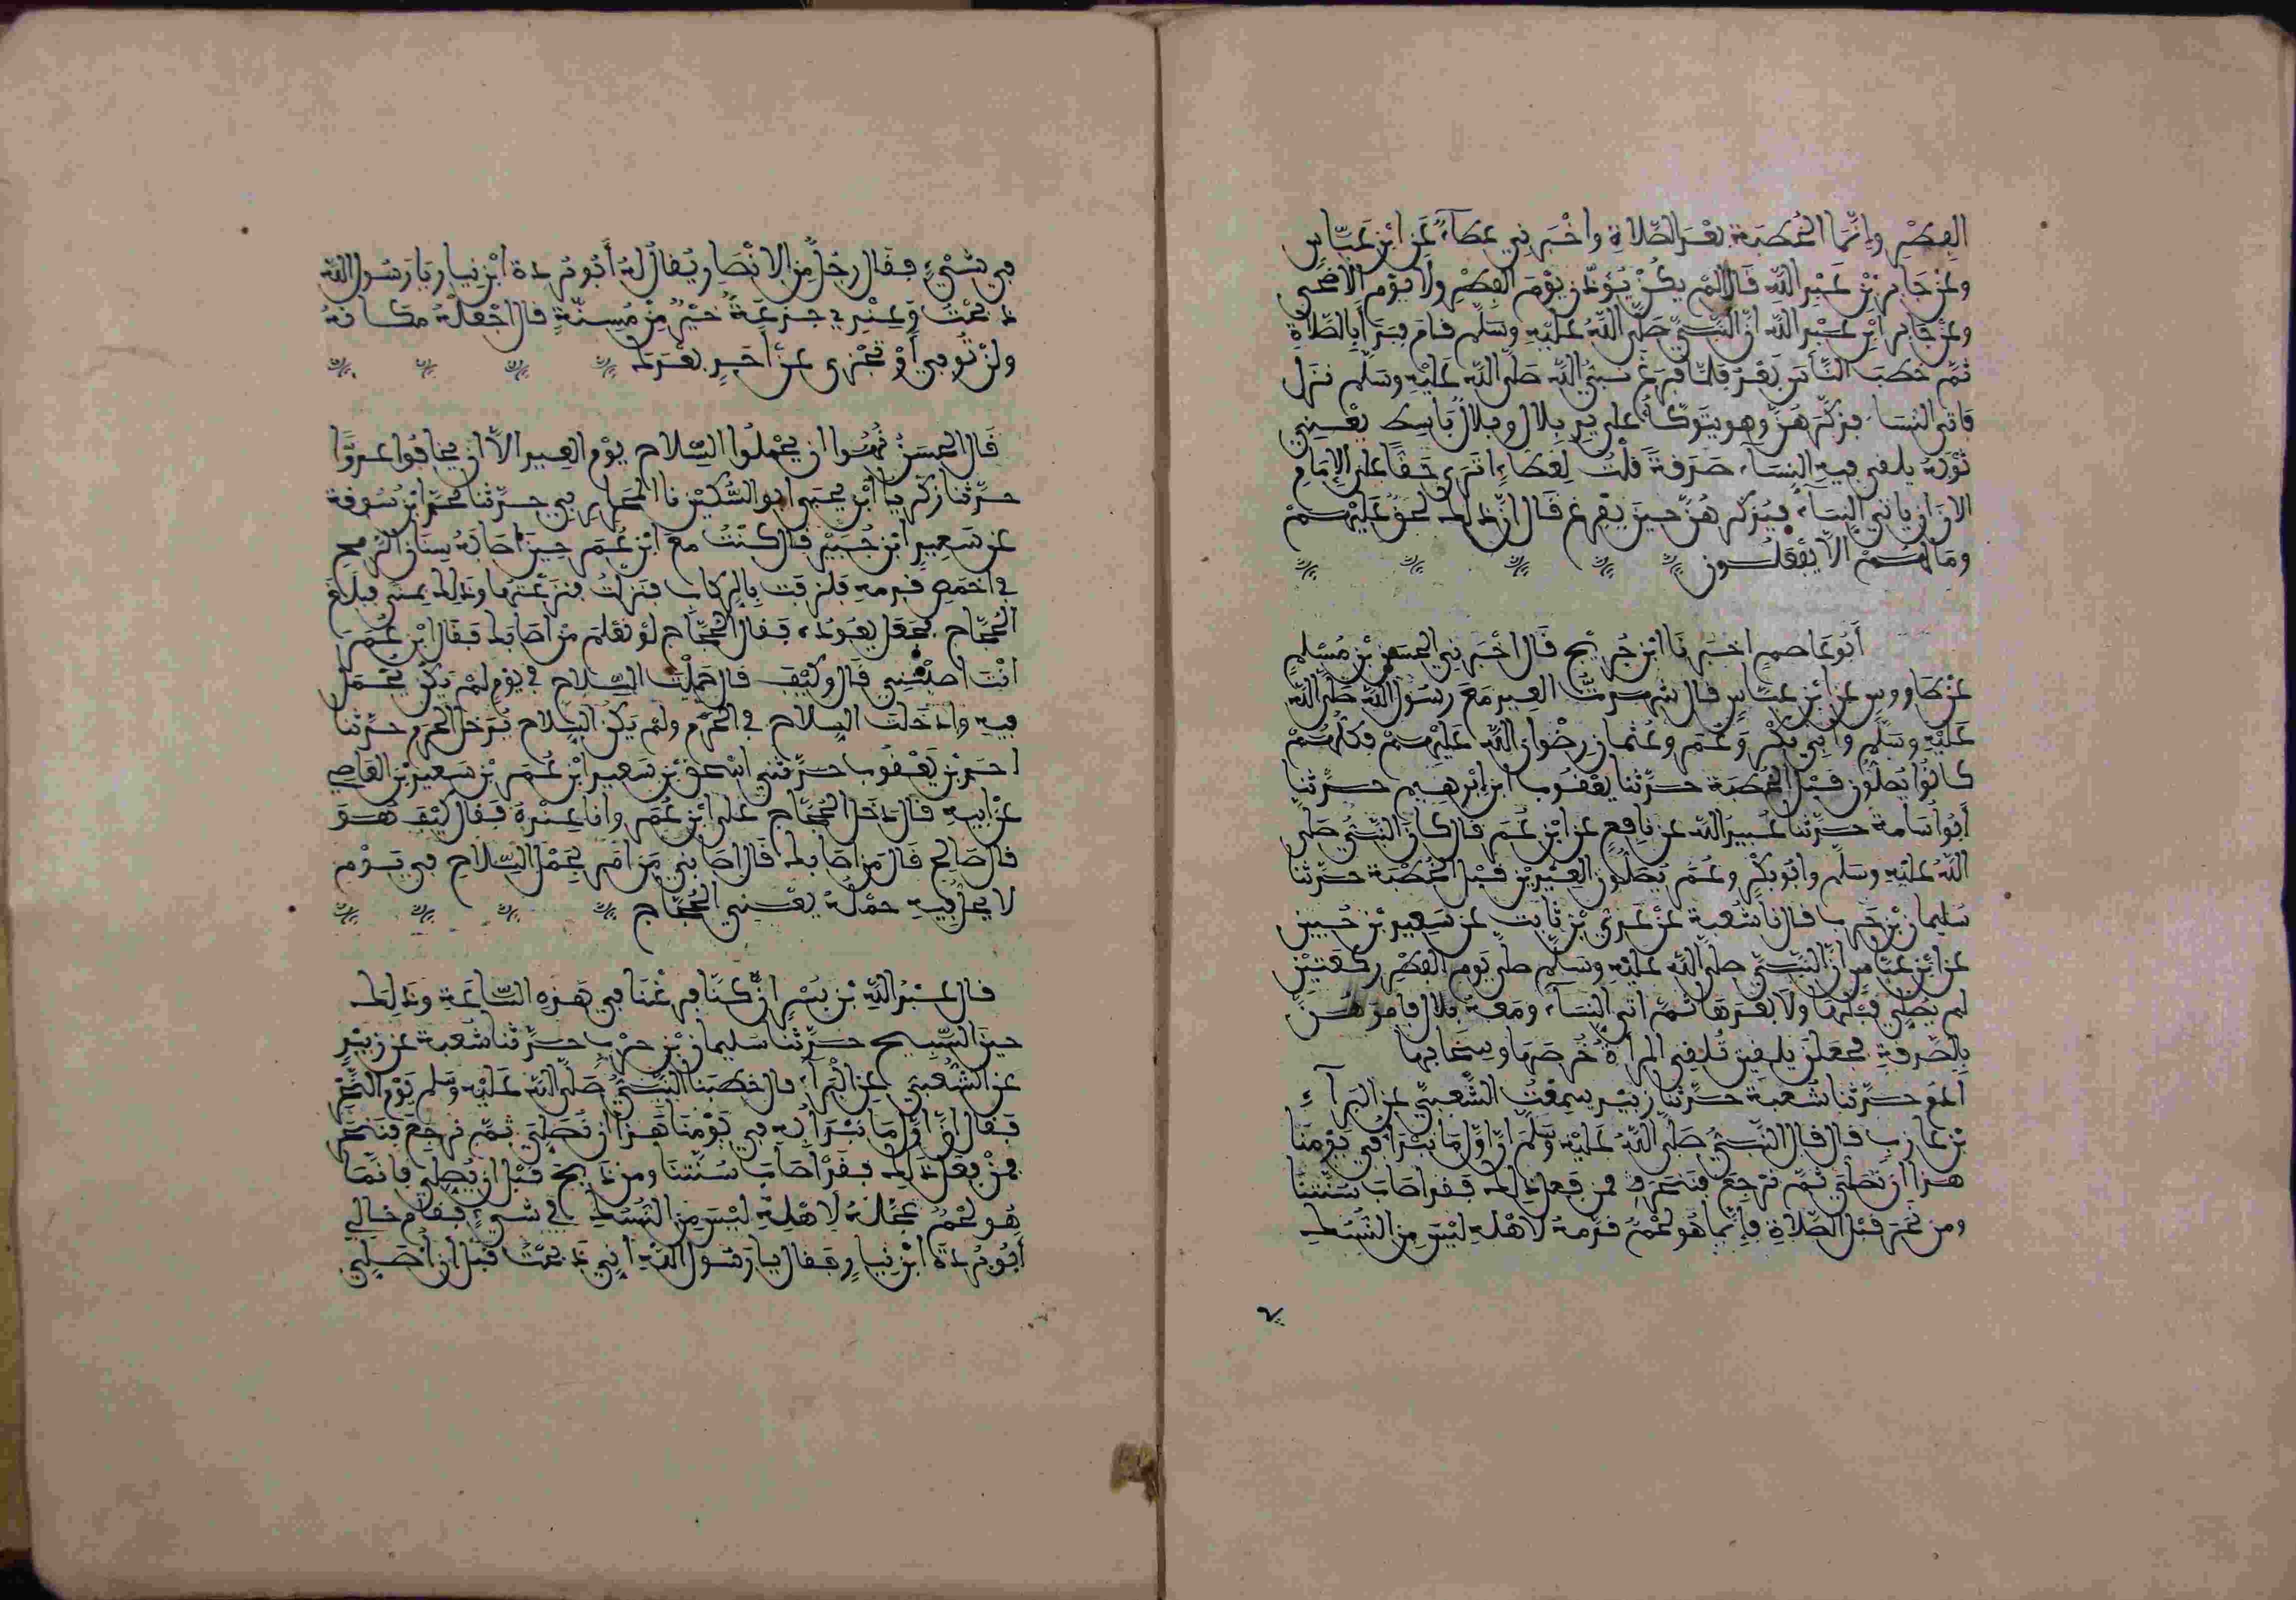 الفطر وإنما الخطبة بعد الصلاة وأخبرني عطاء عن ابن عباس
وعن جابر بن عبد الله قالا لم يكن يؤذن يوم الفطر ولا يوم الاضحى
وعن جابر ابن عبد الله ان النبي صلى الله عليه وسلم قام فبدأ بالصلاة
ثم خطب الناس بعد فلما فرغ نبي الله صلى الله عليه وسلم نزل
فاتى النساء فذكرهن وهو يتوكأ على يد بلال وبلال باسط يعني
ثوبه يلقي فيه النساء صدقة قلت لعطاء اترى حقا على الإمام
الان ان ياتي النساء فيذكرهن حين يفرغ قال ان ذلك لحق عليهم
وما لهم الا يفعلون
أبو عاصم اخبرنا ابن جريج قال أخبرني الحسن بن مسلم
عن طاووس عن ابن عباس قال شهدت العيد مع رسول الله صلى الله
عليه وسلم وأبي بكر وعمر وعثمان رضوان الله عليهم فكلهم
كانوا يصلون قبل الخطبة حدثنا يعقوب ابن إبرهيم حدثنا
أبو أسامة حدثنا عبيد الله عن نافع عن ابن عمر قال كان النبي صلى
الله عليه وسلم وابو بكر وعمر يصلون العيدين قبل الخطبة حدثنا
سليمان بن حرب قال نا شعبة عن عدي بن ثابت عن سعيد بن جبير
عن ابن عباس ان النبي صلى الله عليه وسلم صلى يوم الفطر ركعتين
لم يصل قبلها ولا بعدها ثم اتى النساء ومعه بلال فامرهن
بالصدقة فجعلن يلقين تلقي المرأة خرصها وسخابها
ادم حدثنا شعبة حدثنا زبيد سمعت الشعبي عن البراء
بن عازب قال قال النبي صلى الله عليه وسلم ان أول ما نبدأ في يومنا
هذا ان نصلي ثم نرجع فننحر فمن فعل ذلك فقد اصاب سنتنا
ومن نحر قبل الصلاة فإنما هو لحم قدمه لاهله ليس من النسك
في شيء فقال رجل من الانصار يقال له أبو بردة ابن نيار يا رسول الله
ذبحت وعندي جذعة خير من مسنة قال اجعله مكانه
ولن توفي أو تجزي عن أحد بعدك
قال الحسن نهوا ان يحملوا السلاح يوم العيد الا ان يخافوا عدوا
حدثنا زكريا ابن يحيى ابو السكين نا المحاربي حدثنا محمد ابن سوقة
عن سعيد ابن جبير قال كنت مع ابن عمر حين اصابه سنان الرمح
في اخمص قدمه فلزقت بالركاب فنزلت فنزعتها وذلك بمنى فبلغ
الحجاج فجعل يعوده فقال الحجاج لو نعلم من اصابك فقال ابن عمر
انت اصبتني قال وكيف قال حملت السلاح في يوم لم يكن يحمل
فيه وادخلت السلاح في الحرم ولم يكن السلاح يدخل الحرم حدثنا
احمد بن يعقوب حدثني اسحق بن سعيد ابن عمر بن سعيد بن العاصي
عن ابيه قال دخل الحجاج على ابن عمر وانا عنده فقال كيف هو
قال صالح قال من اصابك قال اصابني من أمر بحمل السلاح في يوم
لا يحل فيه حمله يعني الحجاج
قال عبد الله بن بسر ان كنا فرغنا في هذه الساعة وذلك
حين التسبيح حدثنا سليمان بن حرب حدثنا شعبة عن زبيد
عن الشعبي عن البراء قال خطبنا النبي صلى الله عليه وسلم يوم النحر
فقال ان أول ما نبدأ به في يومنا هذا أن نصلي ثم نرجع فننحر
فمن فعل ذلك فقد أصاب سنتنا ومن ذبح قبل ان يصلي فانما
هو لحم عجله لاهله ليس من النسك في شيء فقام خالي
أبو بردة ابن نيار فقال يا رسول الله اني ذبحت قبل أن أصلي